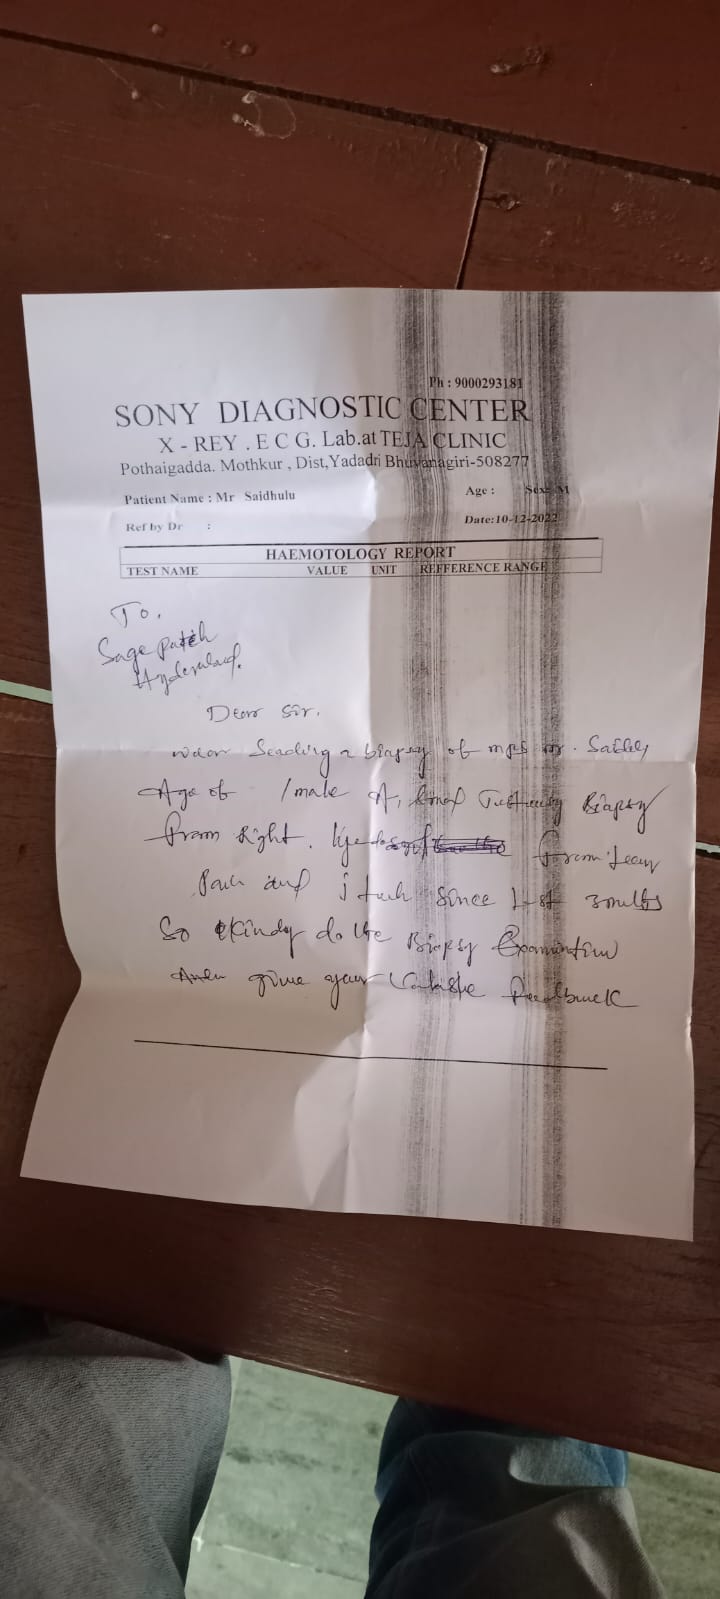 Ph : 9000293181
SONY DIAGNOSTIC CENTER
X - REY . E C G. Lab.at TEJA CLINIC
Pothaigadda. Mothkur , Dist,Yadadri Bhuvanagiri-508277
Patient Name : Mr Saidhulu Age : Sex: M
Ref by Dr : Date:10-12-2022
HAEMOTOLOGY REPORT
TEST NAME VALUE UNIT REFFERENCE RANGE
To,
Sage Path
Hyderabad.
Dear Sir.
Sending a biopsy of
Age of /male A, Biopsy
from Right.
and since 3
So Kindly do the Biopsy Examination
give your Feedback